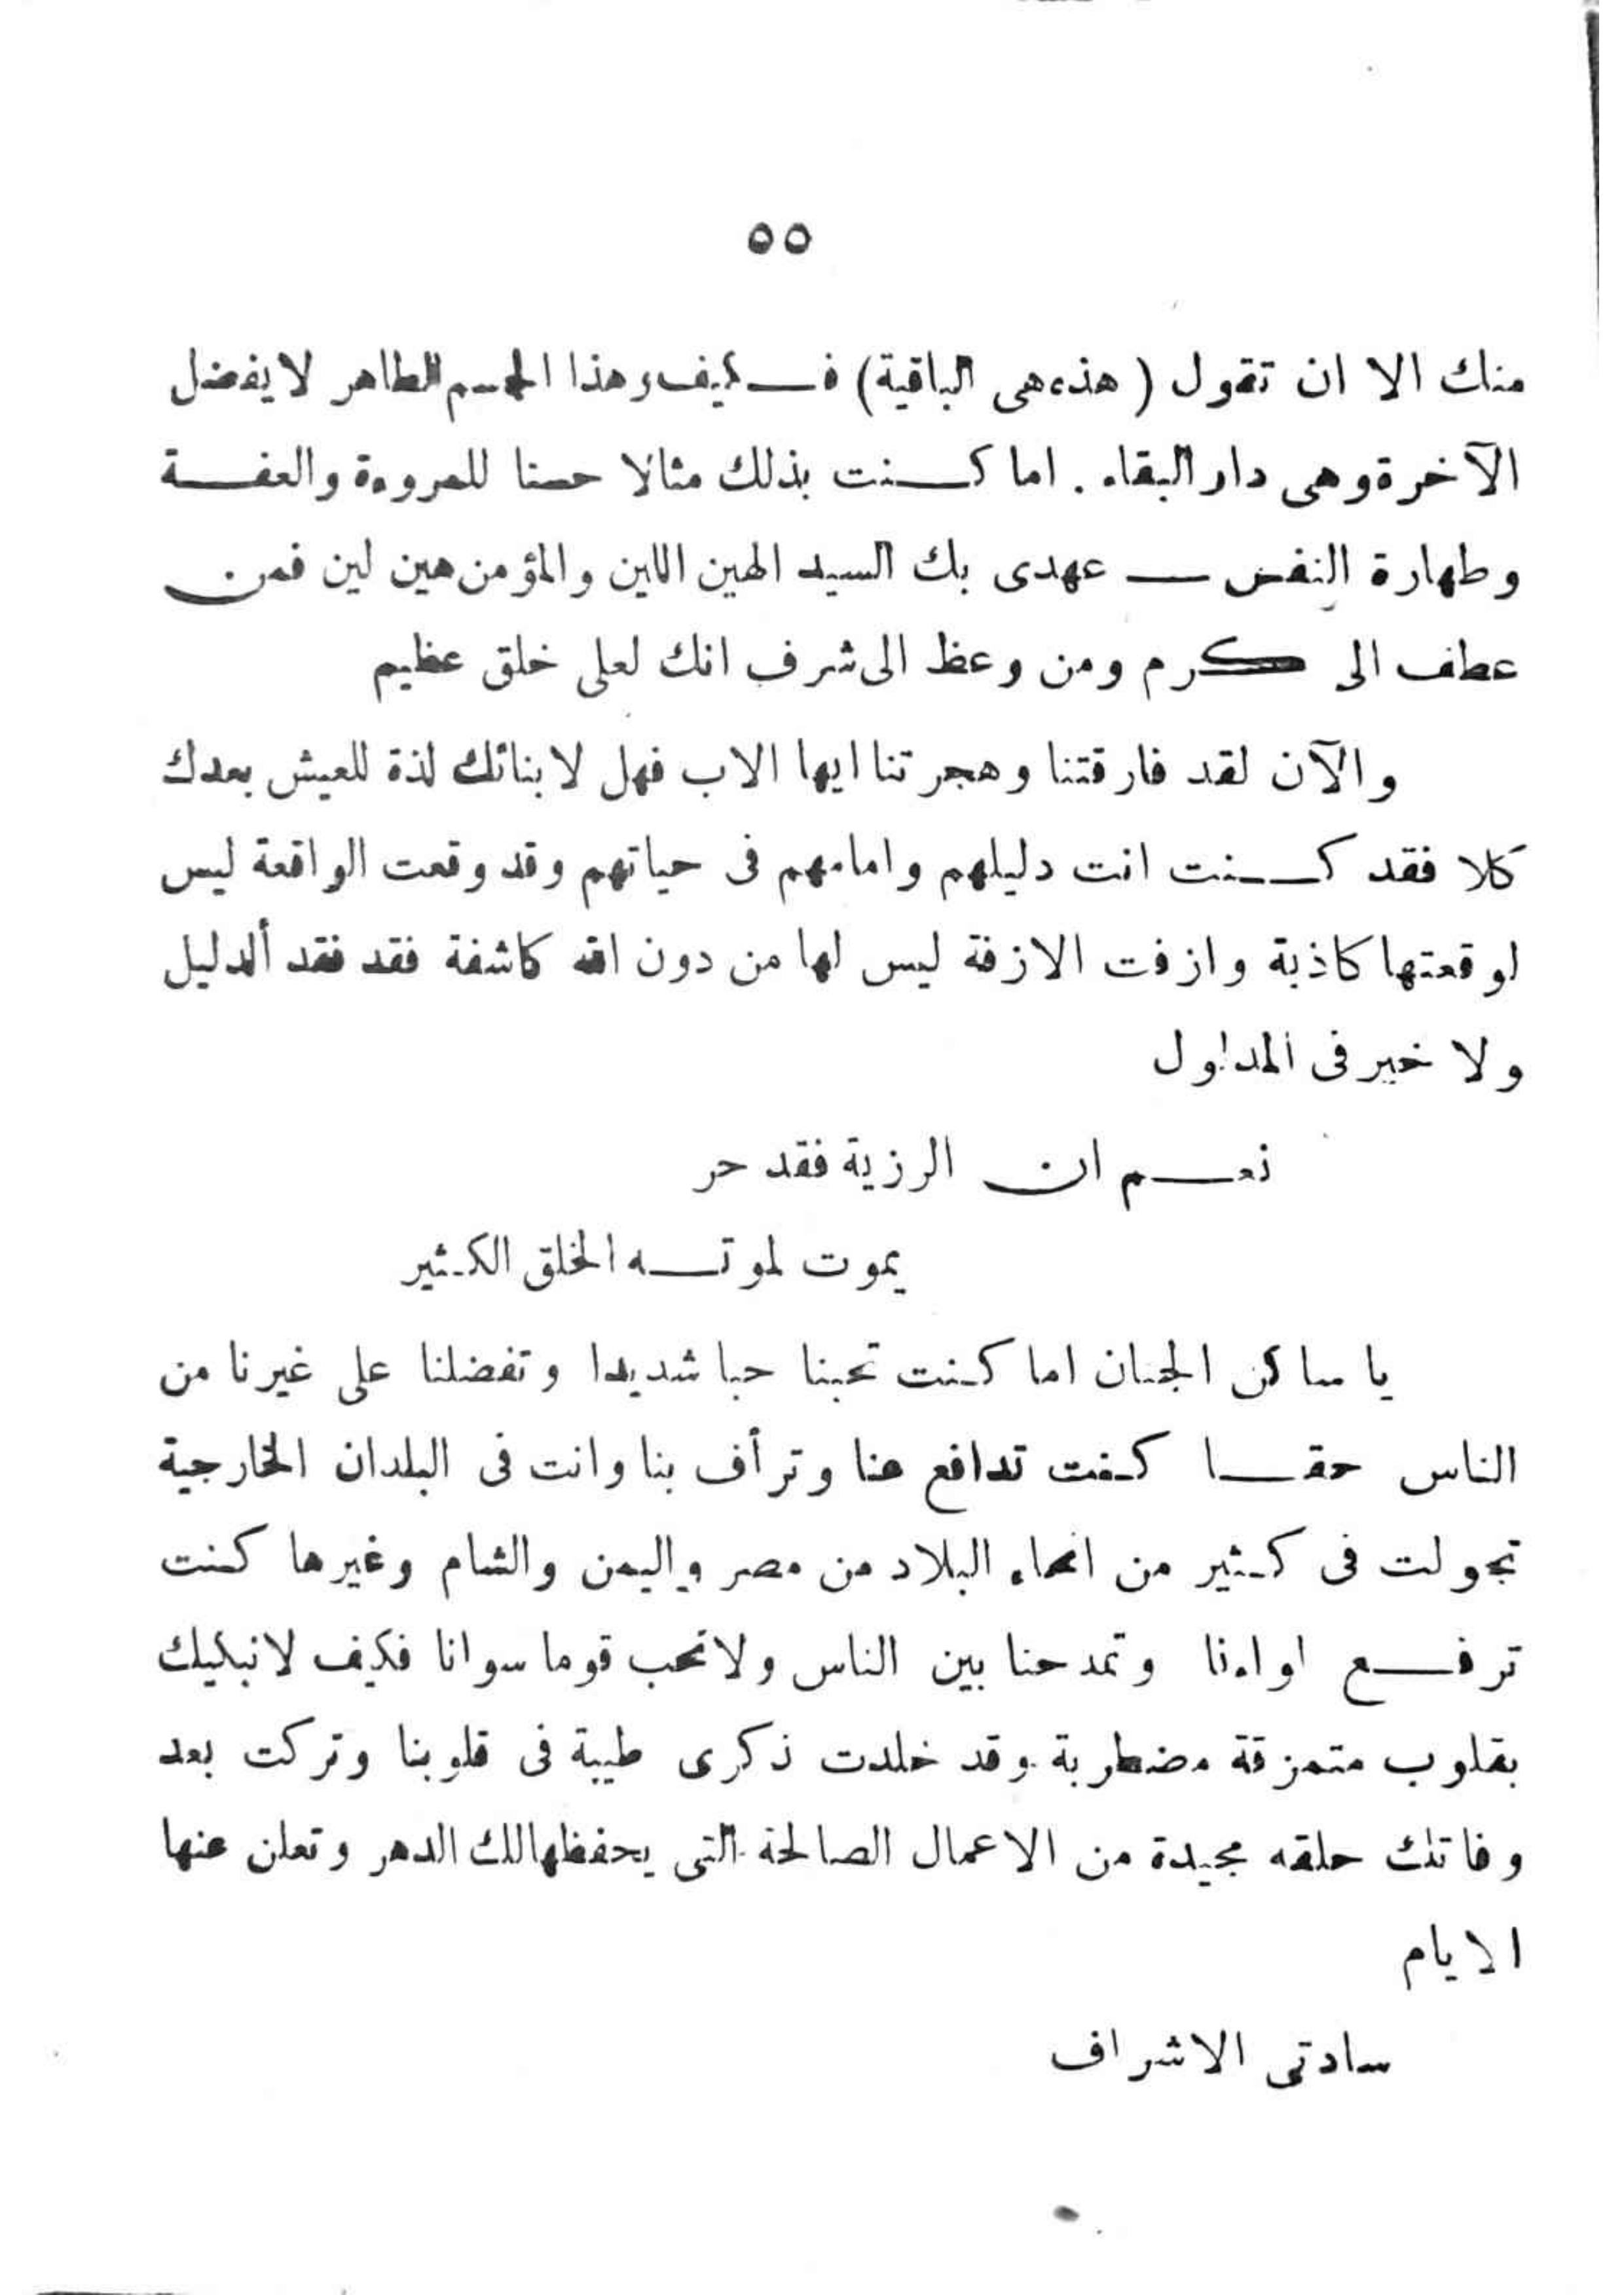 ٥٥
منك الا ان تقول ( هذه هى الباقية) فكيف وهذا الجسم الطاهر لا يفضل
الآخرة وهى دار البقاء . اما كنت بذلك مثالا حسنا للمروءة والعفة
وطهارة النفس — عهدى بك السيد الهين اللين والمؤمن هين لين فمن
عطف الى كرم ومن وعظ الى شرف انك لعلى خلق عظيم
والآن لقد فارقتنا وهجرتنا ايها الاب فهل لابنائك لذة للعيش بعدك
كلا فقد كنت انت دليلهم وامامهم فى حياتهم وقد وقعت الواقعة ليس
لوقعتها كاذبة وازفت الازفة ليس لها من دون الله كاشفة فقد فقد ألدليل
ولا خير فى المدلول
نعم ان الرزية فقد حر
يموت لموته الخلق الكثير
يا ساكن الجنان اما كنت تحبنا حبا شديدا وتفضلنا على غيرنا من
الناس حقا كنت تدافع عنا وترأف بنا وانت فى البلدان الخارجية
تجولت فى كثير من انحاء البلاد من مصر واليمن والشام وغيرها كنت
ترفع لواءنا وتمدحنا بين الناس ولا تحب قوما سوانا فكيف لا نبكيك
بقلوب متمزقة مضطربة وقد خلدت ذكرى طيبة فى قلوبنا وتركت بعد
وفاتك حلقه مجيدة من الاعمال الصالحة التى يحفظها لك الدهر وتعلن عنها
الايام
سادتى الاشراف